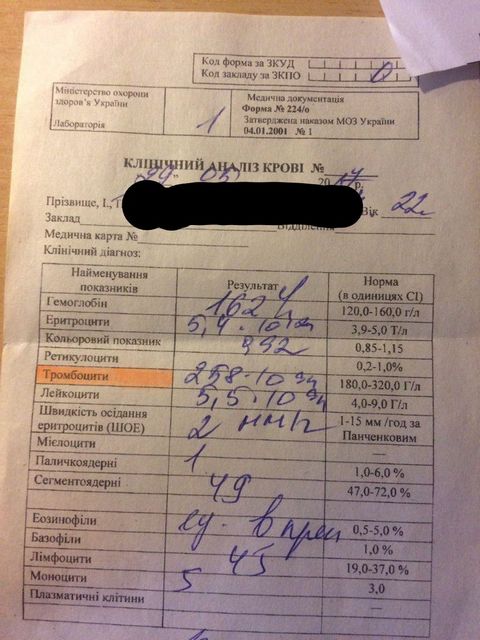 Код форма за ЗКУД
Код закладу за ЗКПО 0
Міністерство охорони
здоров'я України
Лабораторія 1
Медична документація
Форма № 224/о
Затверджена наказом МОЗ України
04.01.2001 № 1
КЛІНІЧНИЙ АНАЛІЗ КРОВІ №
05 2017 р.
Прізвище, І., Вік 22
Заклад Відділення
Медична карта №
Клінічний діагноз:
Найменування показників Результат Норма (в одиницях СІ)
Гемоглобін 162 120,0-160,0 г/л
Еритроцити 5,4·10 3,9-5,0 Т/л
Кольоровий показник 0,85-1,15
Ретикулоцити 0,2-1,0%
Тромбоцити 258·10 180,0-320,0 Г/л
Лейкоцити 5,5·10 4,0-9,0 Г/л
Швидкість осідання еритроцитів (ШОЕ) 2 мм/г 1-15 мм /год за Панченковим
Мієлоцити —
Паличкоядерні 1 1,0-6,0 %
Сегментоядерні 49 47,0-72,0 %
Еозинофіли ед. в преп 0,5-5,0 %
Базофіли 1,0 %
Лімфоцити 45 19,0-37,0 %
Моноцити 5 3,0
Плазматичні клітини —